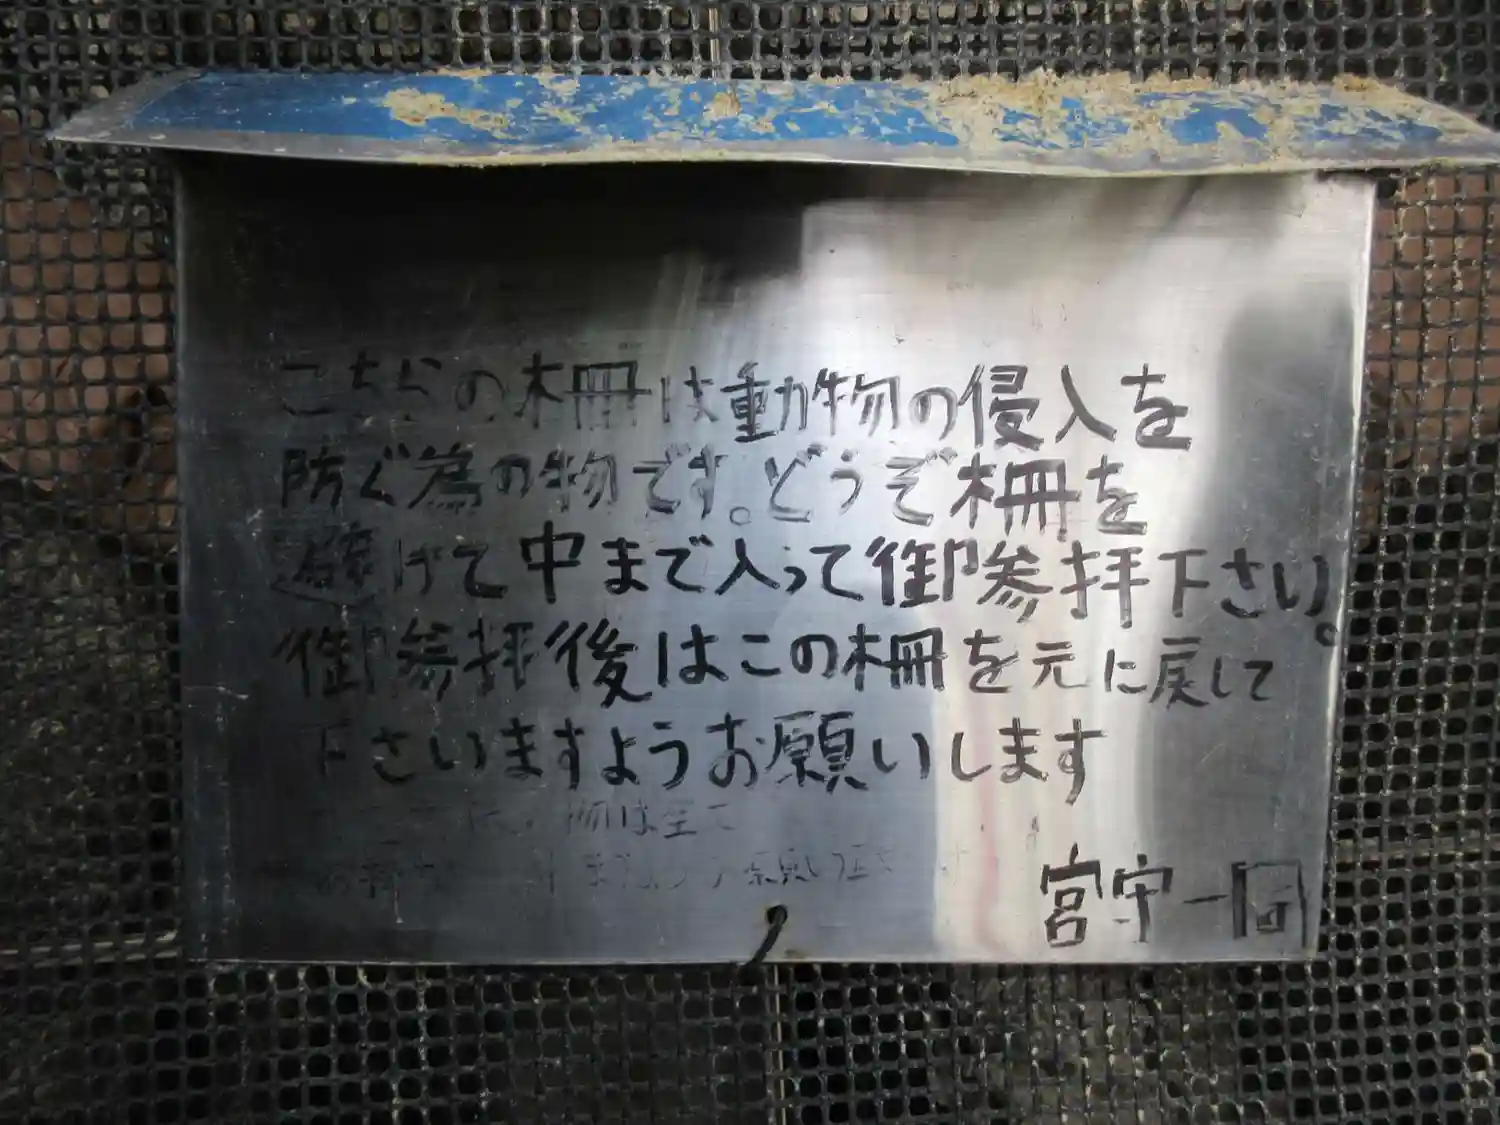 こちらの柵は動物の侵入を
防ぐ為の物です。どうぞ柵を
避けて中まで入って御参拝下さい。
御参拝後はこの柵を元に戻して
下さいますようお願いします
物は全て
宮守一同